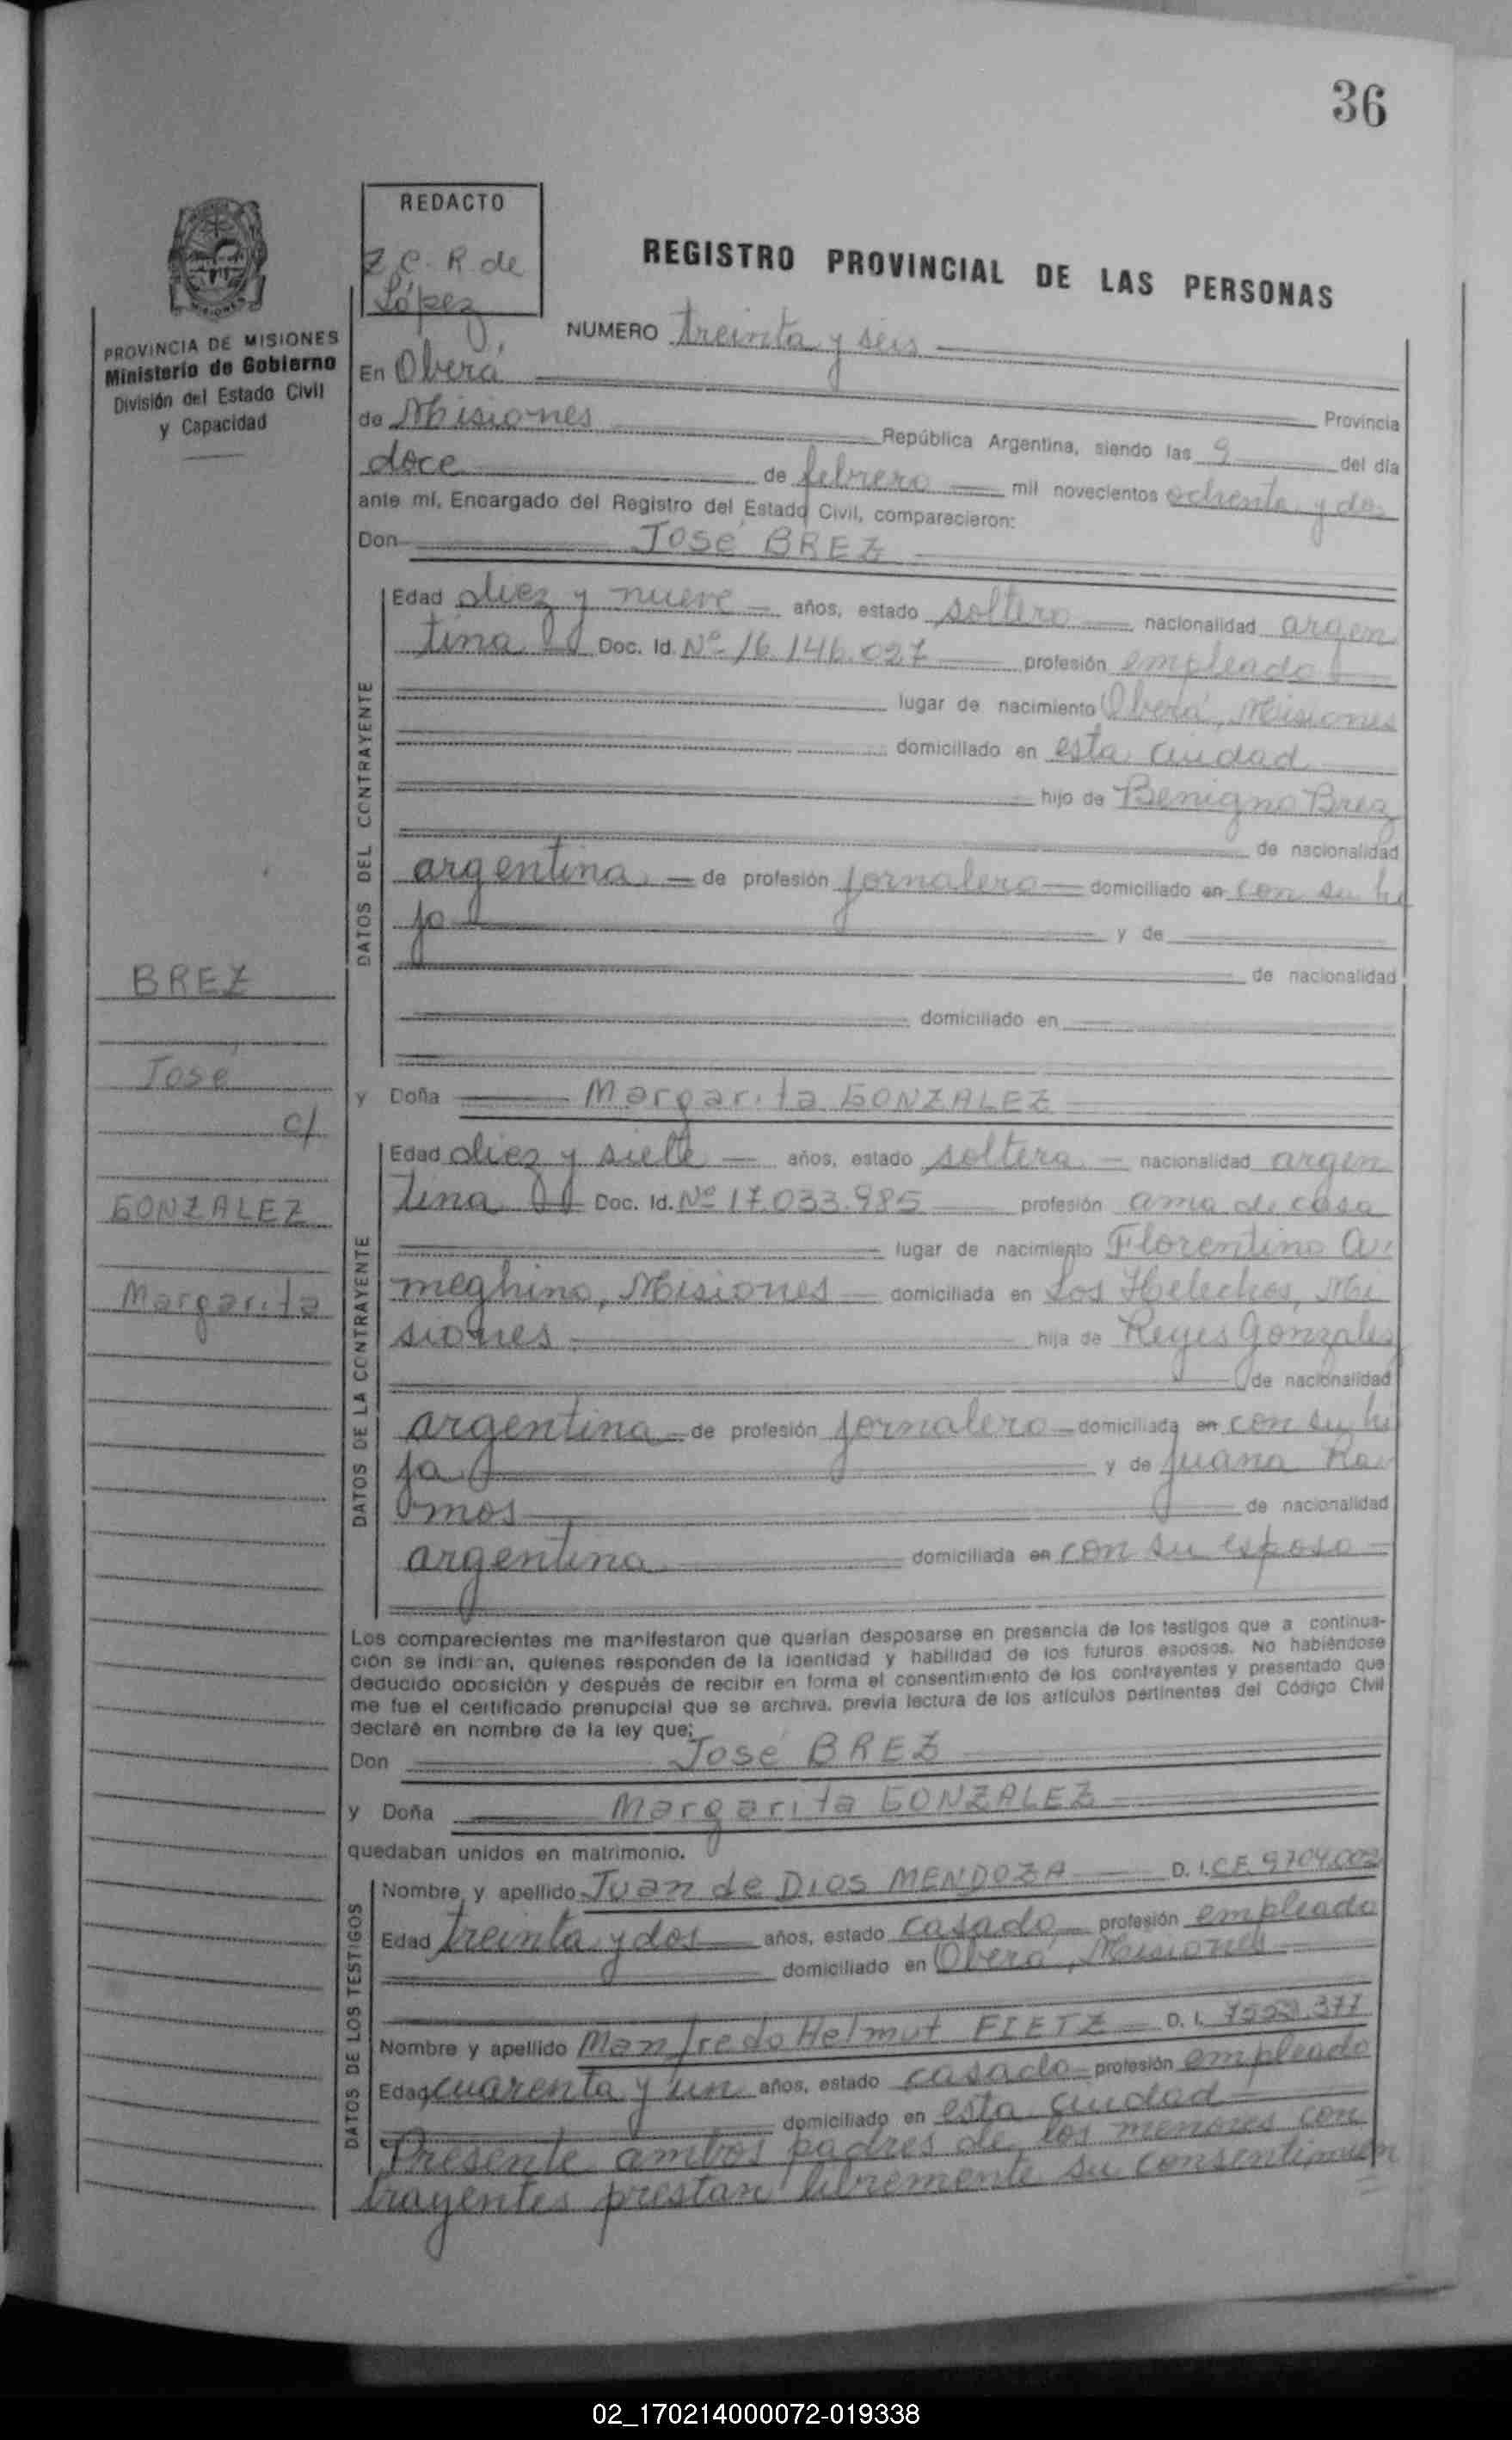 36
REDACTO
Z. C. R. de
López
REGISTRO PROVINCIAL DE LAS PERSONAS
NUMERO treinta y seis
PROVINCIA DE MISIONES
Ministerio de Gobierno
División del Estado Civil
y Capacidad
En Oberá
Provincia
de Misiones República Argentina, siendo las 9 del día
doce de febrero mil novecientos ochenta y dos
ante mí, Encargado del Registro del Estado Civil, comparecieron:
Don José BREZ
DATOS DEL CONTRAYENTE
Edad diez y nueve años, estado soltero nacionalidad argen
tina Doc. Id. Nº 16.146.027 profesión empleado
lugar de nacimiento Oberá, Misiones
domiciliado en esta ciudad
hijo de Benigno Brez
de nacionalidad
argentina de profesión jornalero domiciliado en con su hi
jo y de
de nacionalidad
domiciliado en
BREZ
José
c/
GONZALEZ
Margarita
y Doña Margarita GONZALEZ
DATOS DE LA CONTRAYENTE
Edad diez y siete años, estado soltera nacionalidad argen
tina Doc. Id. Nº 17.033.985 profesión ama de casa
lugar de nacimiento Florentino A
meghino, Misiones domiciliada en Los Helechos, Mi
siones hija de Reyes Gonzalez
de nacionalidad
argentina de profesión jornalero domiciliada en con su hi
ja y de Juana Ra
mos de nacionalidad
argentina domiciliada en con su esposo
Los comparecientes me manifestaron que querían desposarse en presencia de los testigos que a continua-
ción se indican, quienes responden de la identidad y habilidad de los futuros esposos. No habiéndose
deducido oposición y después de recibir en forma el consentimiento de los contrayentes y presentado que
me fue el certificado prenupcial que se archiva, previa lectura de los artículos pertinentes del Código Civil
declaré en nombre de la ley que:
Don José BREZ
y Doña Margarita GONZALEZ
quedaban unidos en matrimonio.
DATOS DE LOS TESTIGOS
Nombre y apellido Juan de Dios MENDOZA D. I. C.F. 9704.002
Edad treinta y dos años, estado casado profesión empleado
domiciliado en Oberá, Misiones
Nombre y apellido Manfredo Helmut FIETZ D. I.
Edad cuarenta y un años, estado casado profesión empleado
domiciliado en esta ciudad
Presente ambos padres de los menores con
trayentes prestan libremente su consentimien
02_170214000072-019338